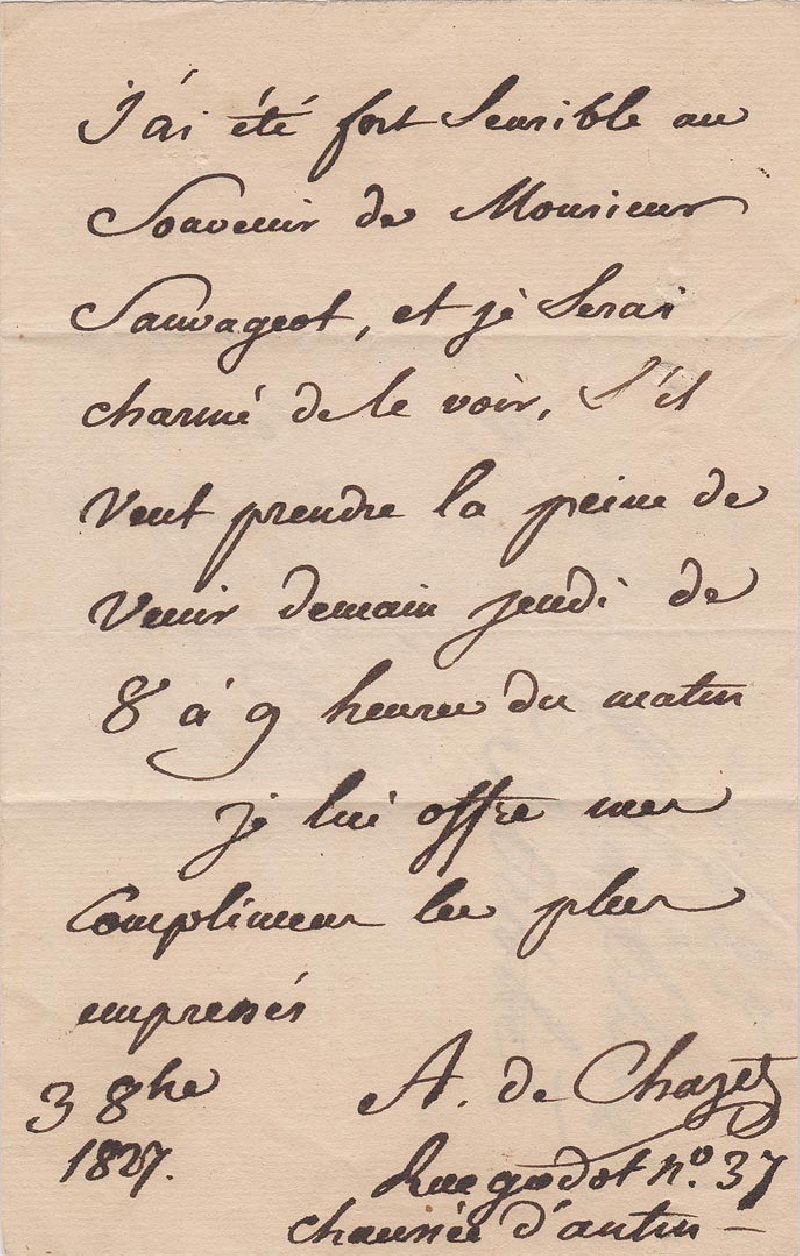 J'ai été fort sensible au
Souvenir de Monsieur
Sauvageot, et je serai
charmé de le voir, s'il
veut prendre la peine de
venir demain jeudi de
8 à 9 heures du matin
je lui offre mes
complimens les plus
empressés
3 8bre
1827.
A. de Chazet
Rue godot n.º 37
chaussée d'antin -